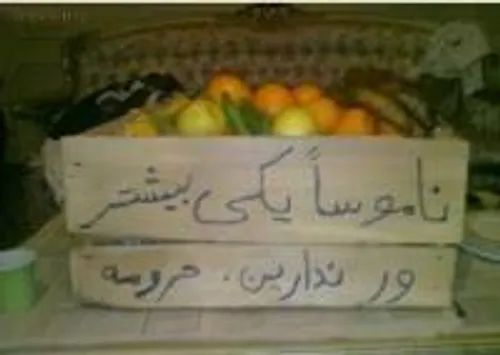 ناموساً یکی بیشتر
ور ندارین، عروسه